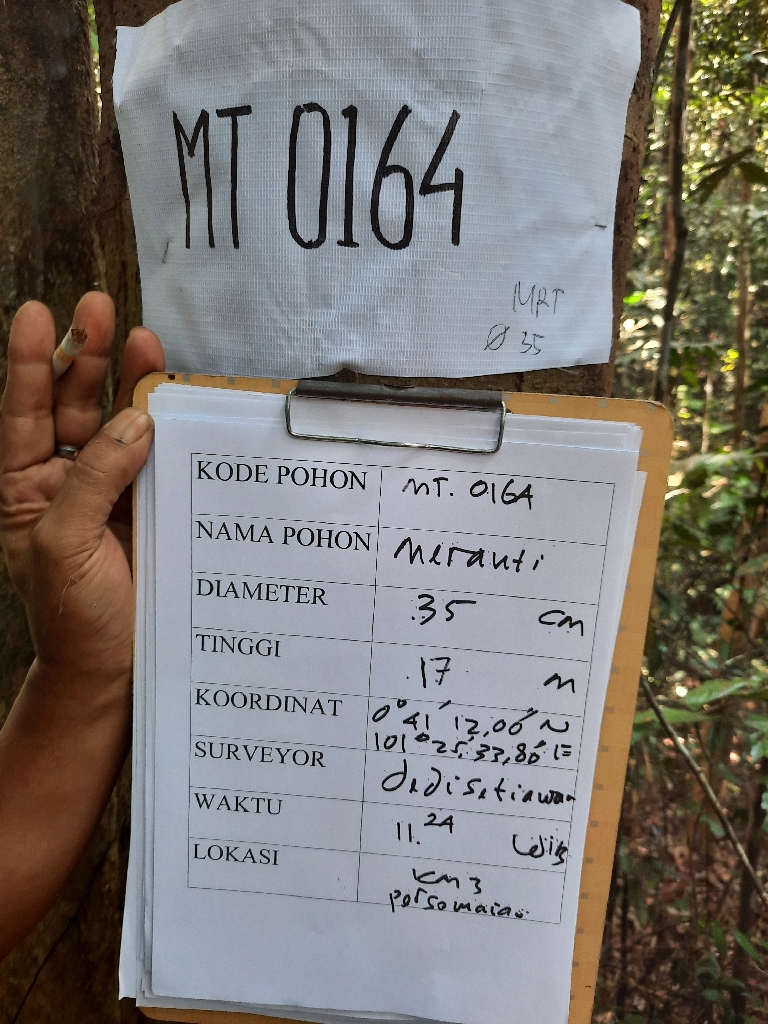 MT 0164
MRT
Ø 35
KODE POHON MT. 0164
NAMA POHON Meranti
DIAMETER 35 cm
TINGGI 17 m
KOORDINAT 0° 41' 12,00" N
101° 25' 33,80" E
SURVEYOR dedi setiawan
WAKTU 11.24 WIB
LOKASI KM 3